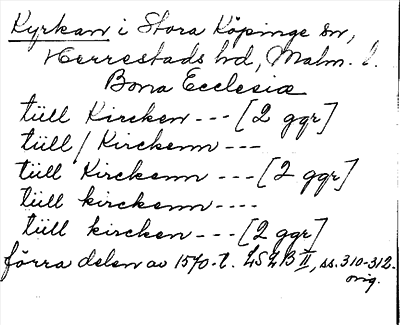 Kyrkan i Stora Köpinge sn,
Herrestads hd, Malm. l.
Bona Ecclesiæ
tüll Kircken --- [2 ggr]
tüll / Kirckenn ---
tüll Kirckenn --- [2 ggr]
tüll kirckenn ----
tüll kircken --- [2 ggr]
förra delen av 1570-t. LSLB II, ss. 310-312.
orig.